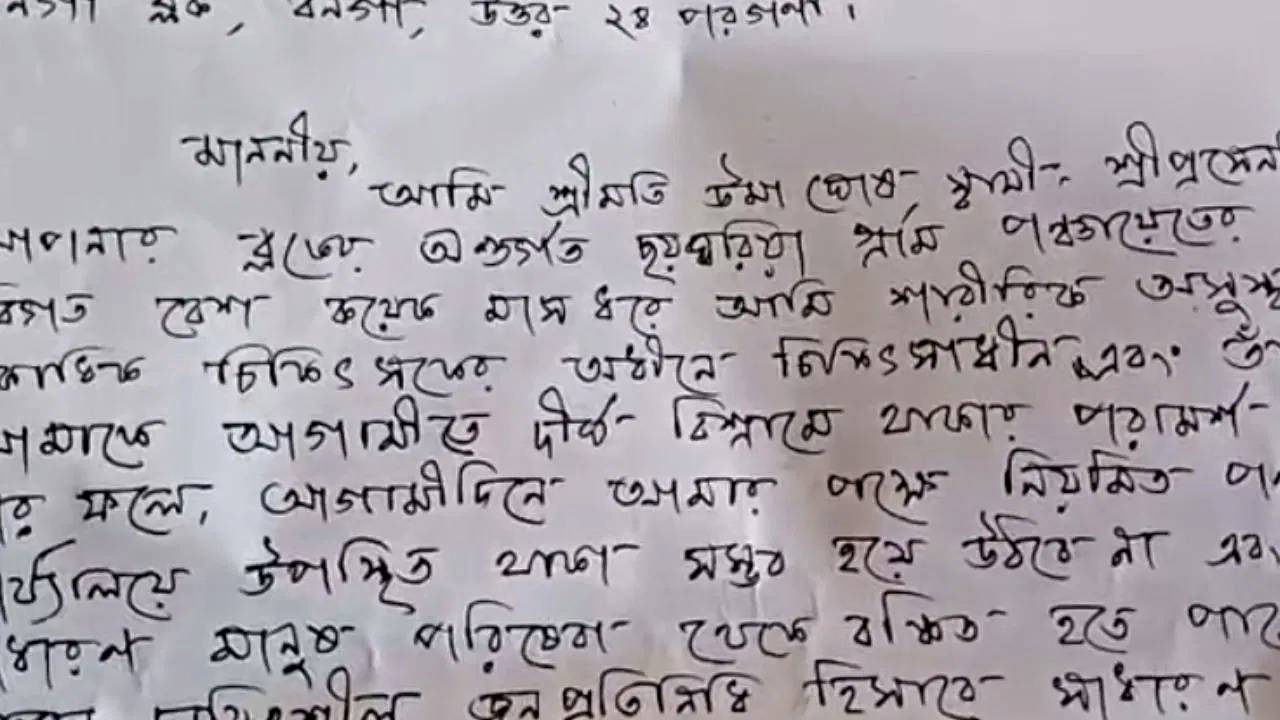 ব্লক, বনগাঁ, উত্তর ২৪ পরগণা।
মাননীয়,
আমি শ্রীমতি উমা ঘোষ, স্বামী- শ্রী প্রসেন
আপনার ব্লকের অন্তর্গত ছয়ঘরিয়া গ্রাম পঞ্চায়েতের
বিগত বেশ কয়েক মাস ধরে আমি শারীরিক অসুস্থ
চিকিৎসকের অধীনে চিকিৎসাধীন এবং তাঁ
আমাকে আগামীতে দীর্ঘ বিশ্রামে থাকার পরামর্শ
যার ফলে, আগামীদিনে আমার পক্ষে নিয়মিত প
র্য্যালয়ে উপস্থিত থাকা সম্ভব হয়ে উঠবে না এবং
ধারণ মানুষ পরিষেবা থেকে বঞ্চিত হতে পারে
জনপ্রতিনিধি হিসাবে সাধারণ